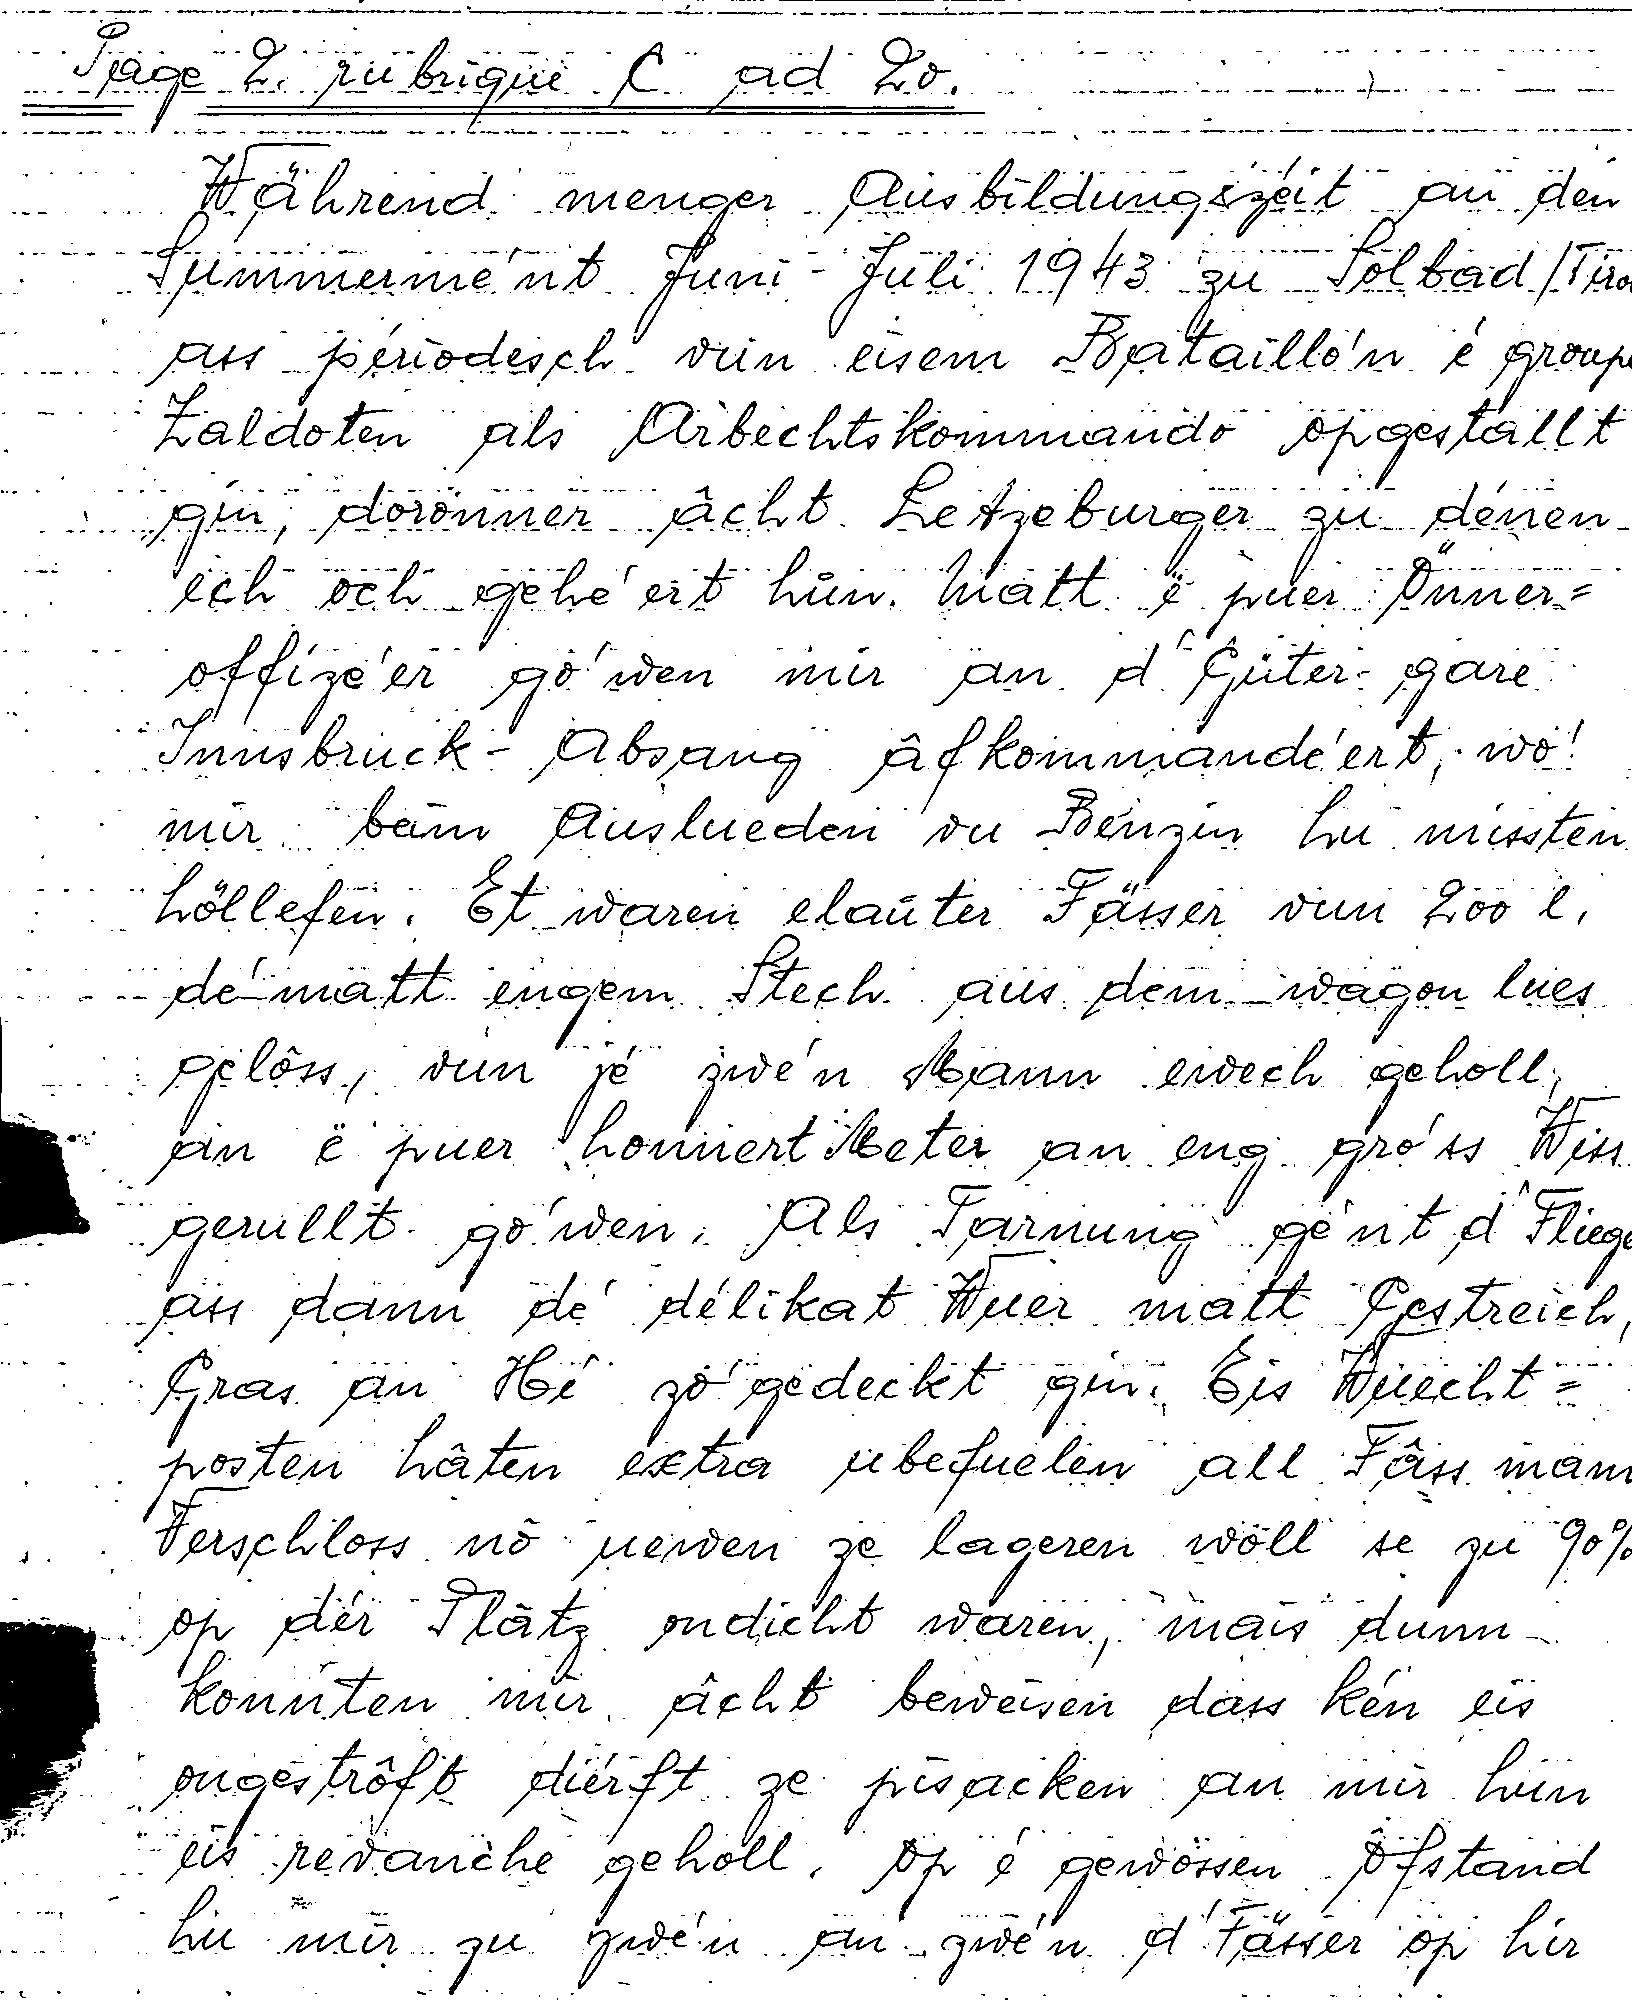 Page 2. rubrique C ad 20.
Während menger Ausbildungszéit an den
Summermént Juni - Juli 1943 zu Solbad/Tiro
ass périodesch vun eisem Bataillo'n é groupe
Zaldoten als Arbechtskommando opgestallt
gin, dorönner âcht Letzeburger zu dénen
ech och gehé'ert hun. Matt ë puer Önner=
offizé'er gó'wen mir an d'Güter-gare
Innsbruck - Absang âfkommandé'ert, wó'
mir beim Auslueden vu Benzin hu missten
höllefen. Et waren elauter Fässer vun 200 l,
dé' matt engem Stech aus dem wagon lues
gelôss, vun jé zwé'n Mann ewech geholl,
an ë puer honnert Meter an eng gro'ss Wiss
gerullt gó'wen. Als Tarnung gé'nt d'Fliege
ass dann dé' délikat Wuer matt Gestreich,
Gras an Hé zó'gedeckt gin. Eis Wuecht=
posten hâten extra ubefuelen all Fâss mam
Verschloss nô uewen ze lageren wöll se zu 90%
op dér Plâtz ondicht waren, mais dunn
konnten mir âcht beweisen dass kén eis
ongestrôft diérft ze pisacken an mir hun
eis revanche geholl. Op é gewössen Ôfstand
hu mir zu zwé'n an zwé'n d'Fässer op hir